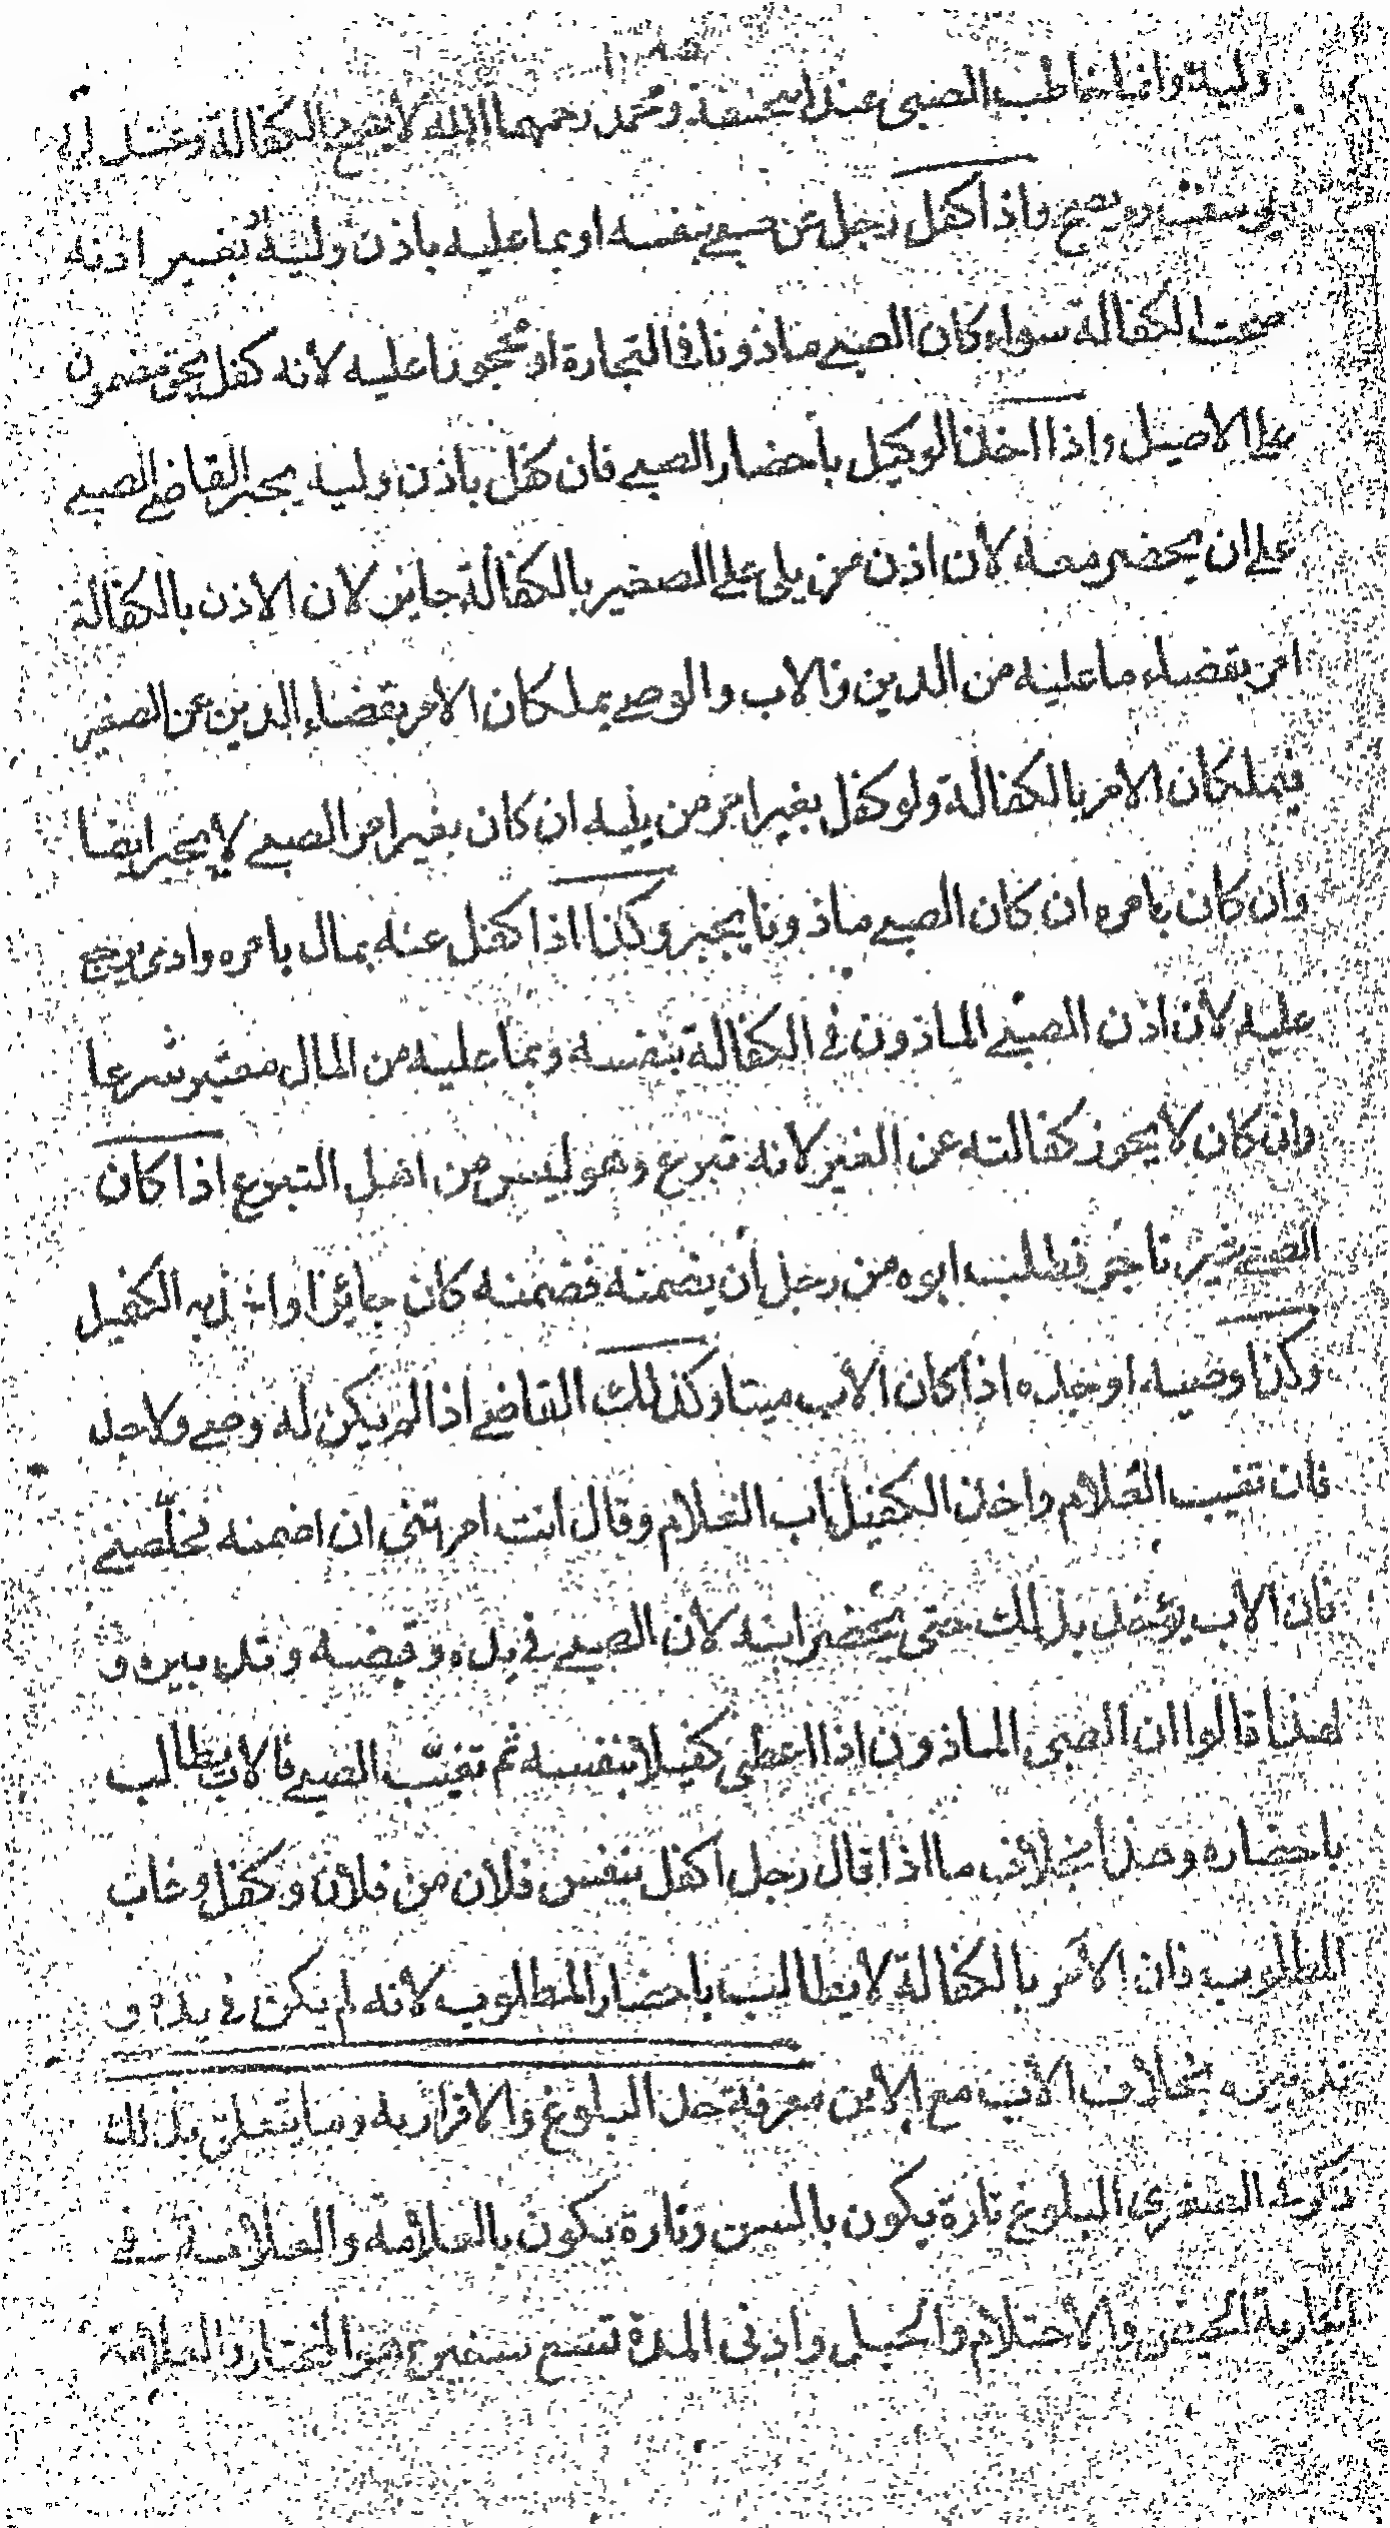 وليه وانما يخاطب الصبي عند ابي حنيفة ومحمد رحمهما الله لا يصح الكفالة وعند ابي
يوسف ويصح واذا كفل رجل عن صبي بنفسه او بما عليه باذن وليه بغير اذنه
صحت الكفالة سواء كان الصبي ماذونا في التجارة او محجورا عليه لأنه كفل بحق مضمون
على الاصيل واذا اخذ الوكيل باحضار الصبي فان كفل باذن وليه يجبر القاضي الصبي
على ان يحضر معه لأن اذن من يلي على الصغير بالكفالة جايز لان الاذن بالكفالة
امر بقضاء ما عليه من الدين والاب والوصي يملكان الامر بقضاء الدين عن الصغير
فيملكان الامر بالكفالة ولو كفل بغير امر من يليه ان كان بغير امر الصبي لا يجبر ايضا
وان كان بامره ان كان الصبي ماذونا يجبر وكذا اذا كفل عنه بمال بامره وادى يرجع
عليه لأن اذن الصبي الماذون في الكفالة بنفسه وبما عليه من المال معتبر شرعا
وان كان لا يجوز كفالته عن الغير لانه تبرع وهو ليس من اهل التبرع اذا كان
الصبي غير تاجر فطلب ابوه من رجل أن يضمنه فضمنه كان جائزا واخذ به الكفيل
وكذا وصيه او جده اذا كان الأب ميتا وكذلك القاضي اذا لم يكن له وصي ولا جد
فان تغيب الغلام واخذ الكفيل اب الغلام وقال انت امرتني ان اضمنه فخلّصني
فان الاب يؤخذ بذلك حتى يحضر ابنه لأن الصبي في يده وقبضه وتدبيره و
لهذا قالوا ان الصبي الماذون اذا اعطى كفيلا بنفسه ثم تغيّب الصبي فالاب يطالب
باحضاره وهذا بخلاف ما اذا قال رجل اكفل بنفس فلان من فلان وكفل وغاب
المطلوب فان الآمر بالكفالة لا يطالب باحضار المطلوب لأنه لم يكن في يده و
تدبيره بخلاف الاب مع الابن معرفة حد البلوغ والاقرار به وما يتعلق بذلك
ذكر في الصغرى البلوغ تارة يكون بالسن وتارة يكون بالعلامة والعلامة في
الجارية الحيض والاحتلام والحبل وادنى المدة تسع سنين هو المختار والعلامة